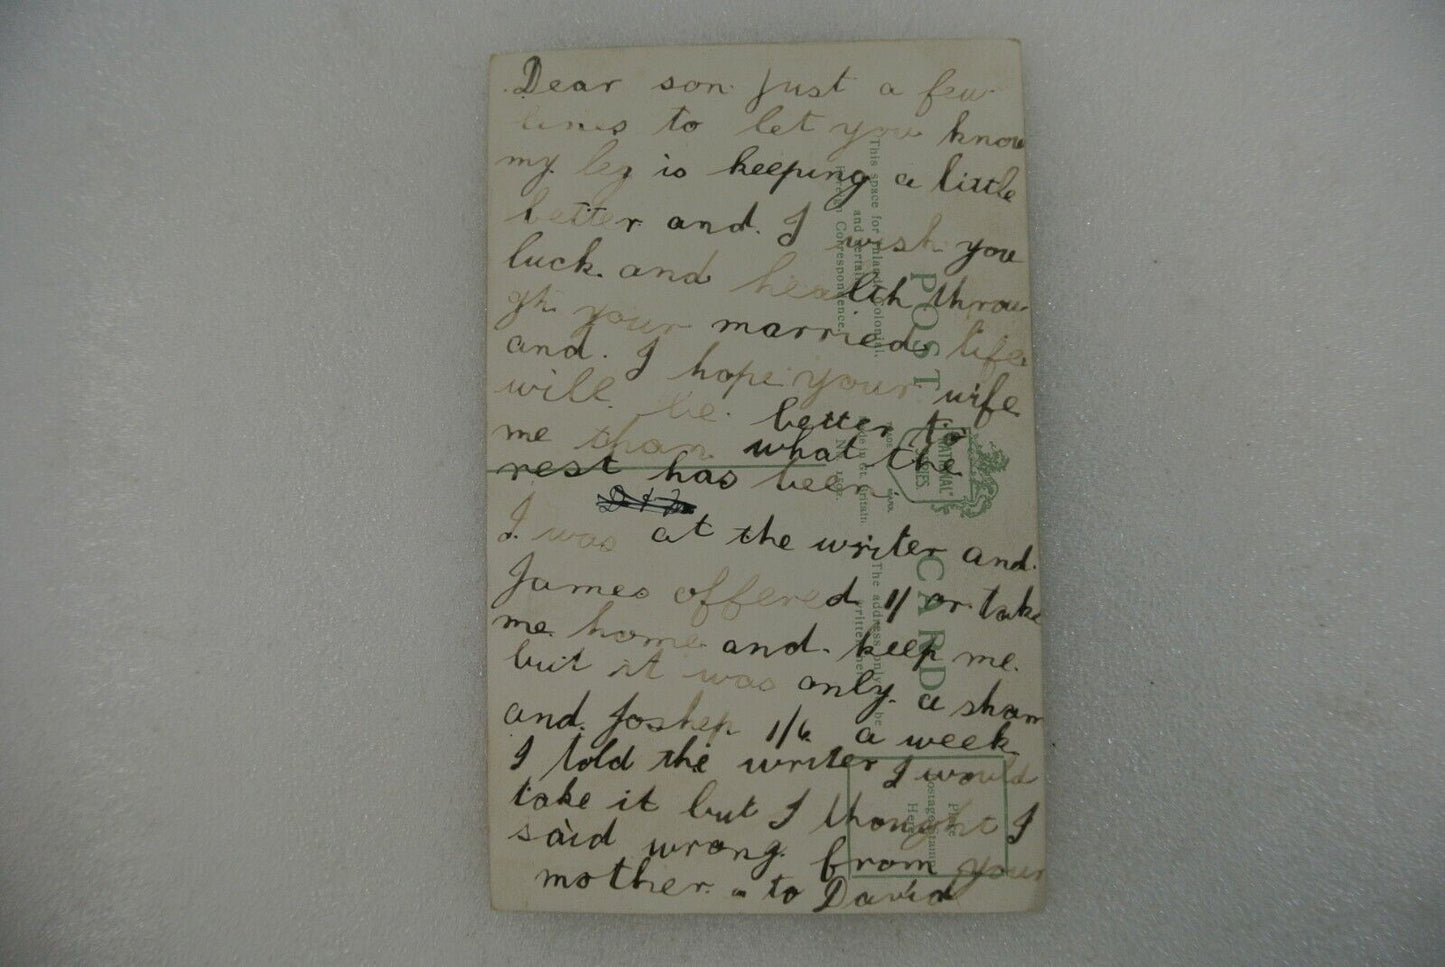 Dear son just a few
lines to let you know
my leg is keeping a little
better and. I wish you
luck. and health throu
gh your married life
and. I hope your wife
will be better to
me than what the
rest has been
I was at the writer and.
James offered 1/ or take
me home and. keep me.
but it was only a sham
and. Joshep 1/6 a week
I told the writer I would
take it but I thought I
said wrong from your
mother. to David
POST CARD
This space for Inland, Colonial,
and certain
Foreign Correspondence.
The address only to be
written here
NATIONAL
SERIES
Made in Gt. Britain.
Place
Postage Stamp
Here